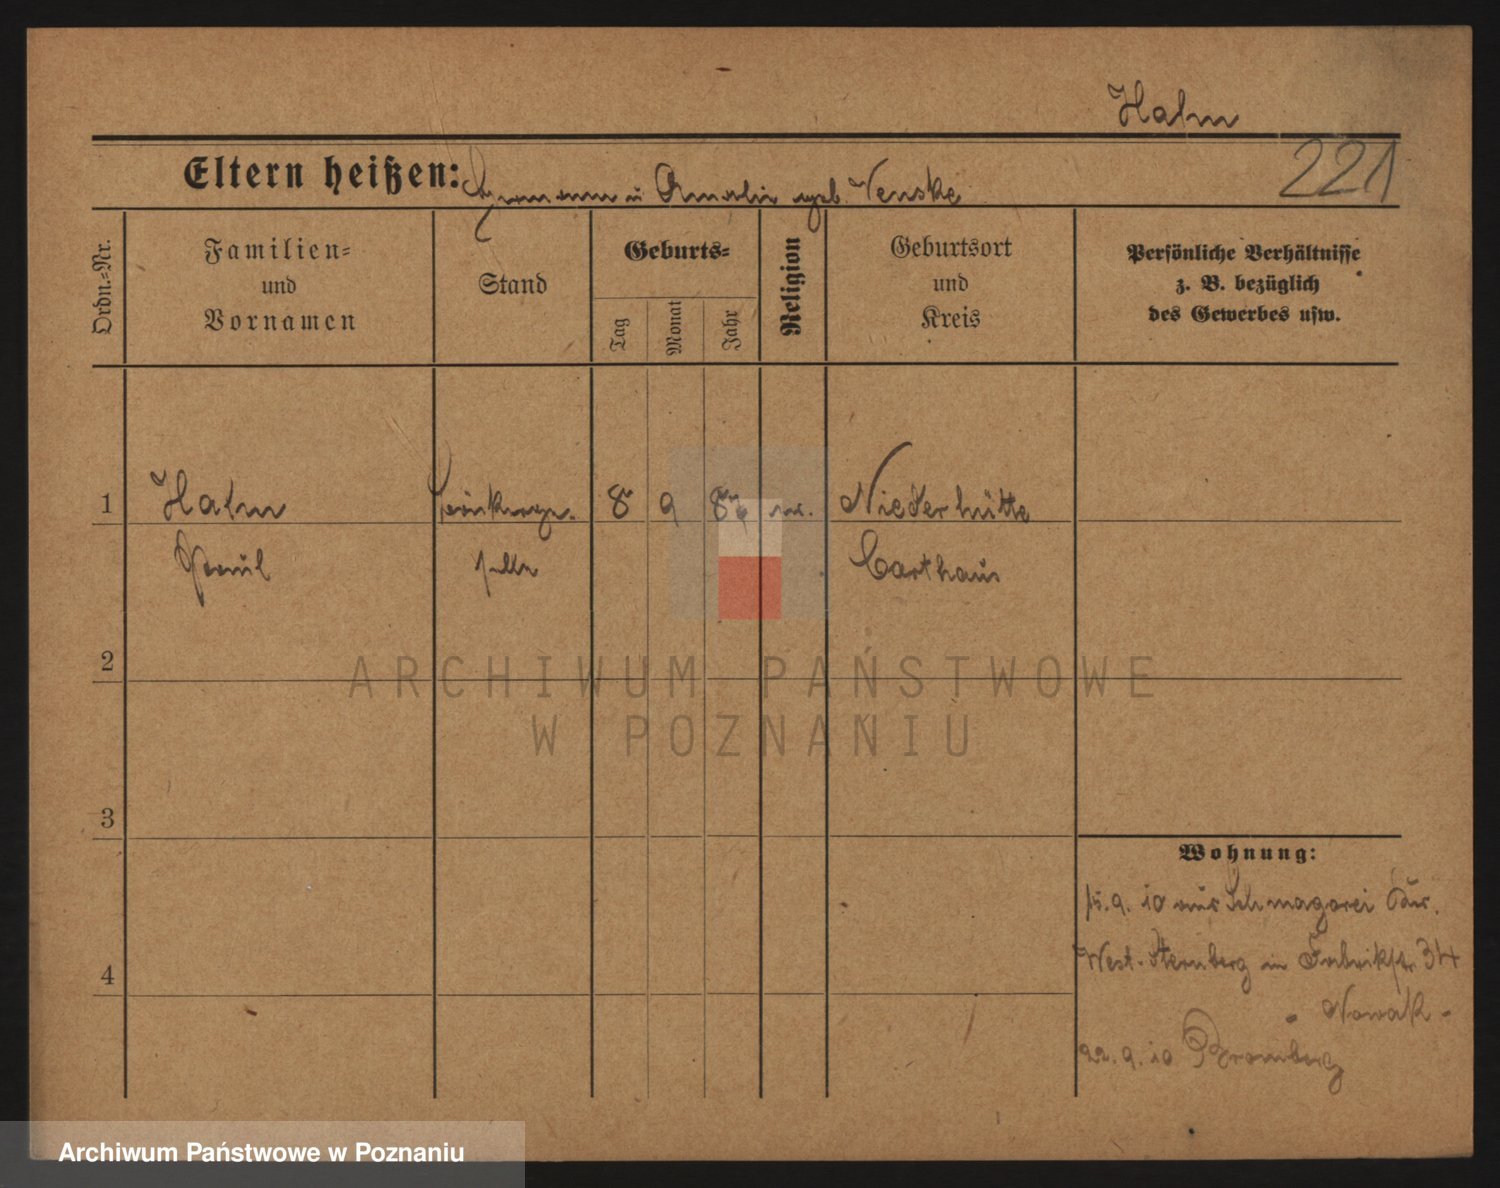 Hahn
221
Eltern heißen: Hermann u Amalie geb. Venske
Ordn.-Nr.
Familien-
und
Vornamen
Stand
Geburts-
Tag
Monat
Jahr
Religion
Geburtsort
und
Kreis
Persönliche Verhältnisse
z. B. bezüglich
des Gewerbes usw.
1 Hahn 8 9 Niederhütte
Paul Carthaus
2
3
4
Wohnung:
15.9.10 aus Schmagorei Kr.
West-Sternberg in Fabrikstr 34
- Nowak -
22.9.10 Bromberg
ARCHIWUM PAŃSTWOWE
W POZNANIU
Archiwum Państwowe w Poznaniu